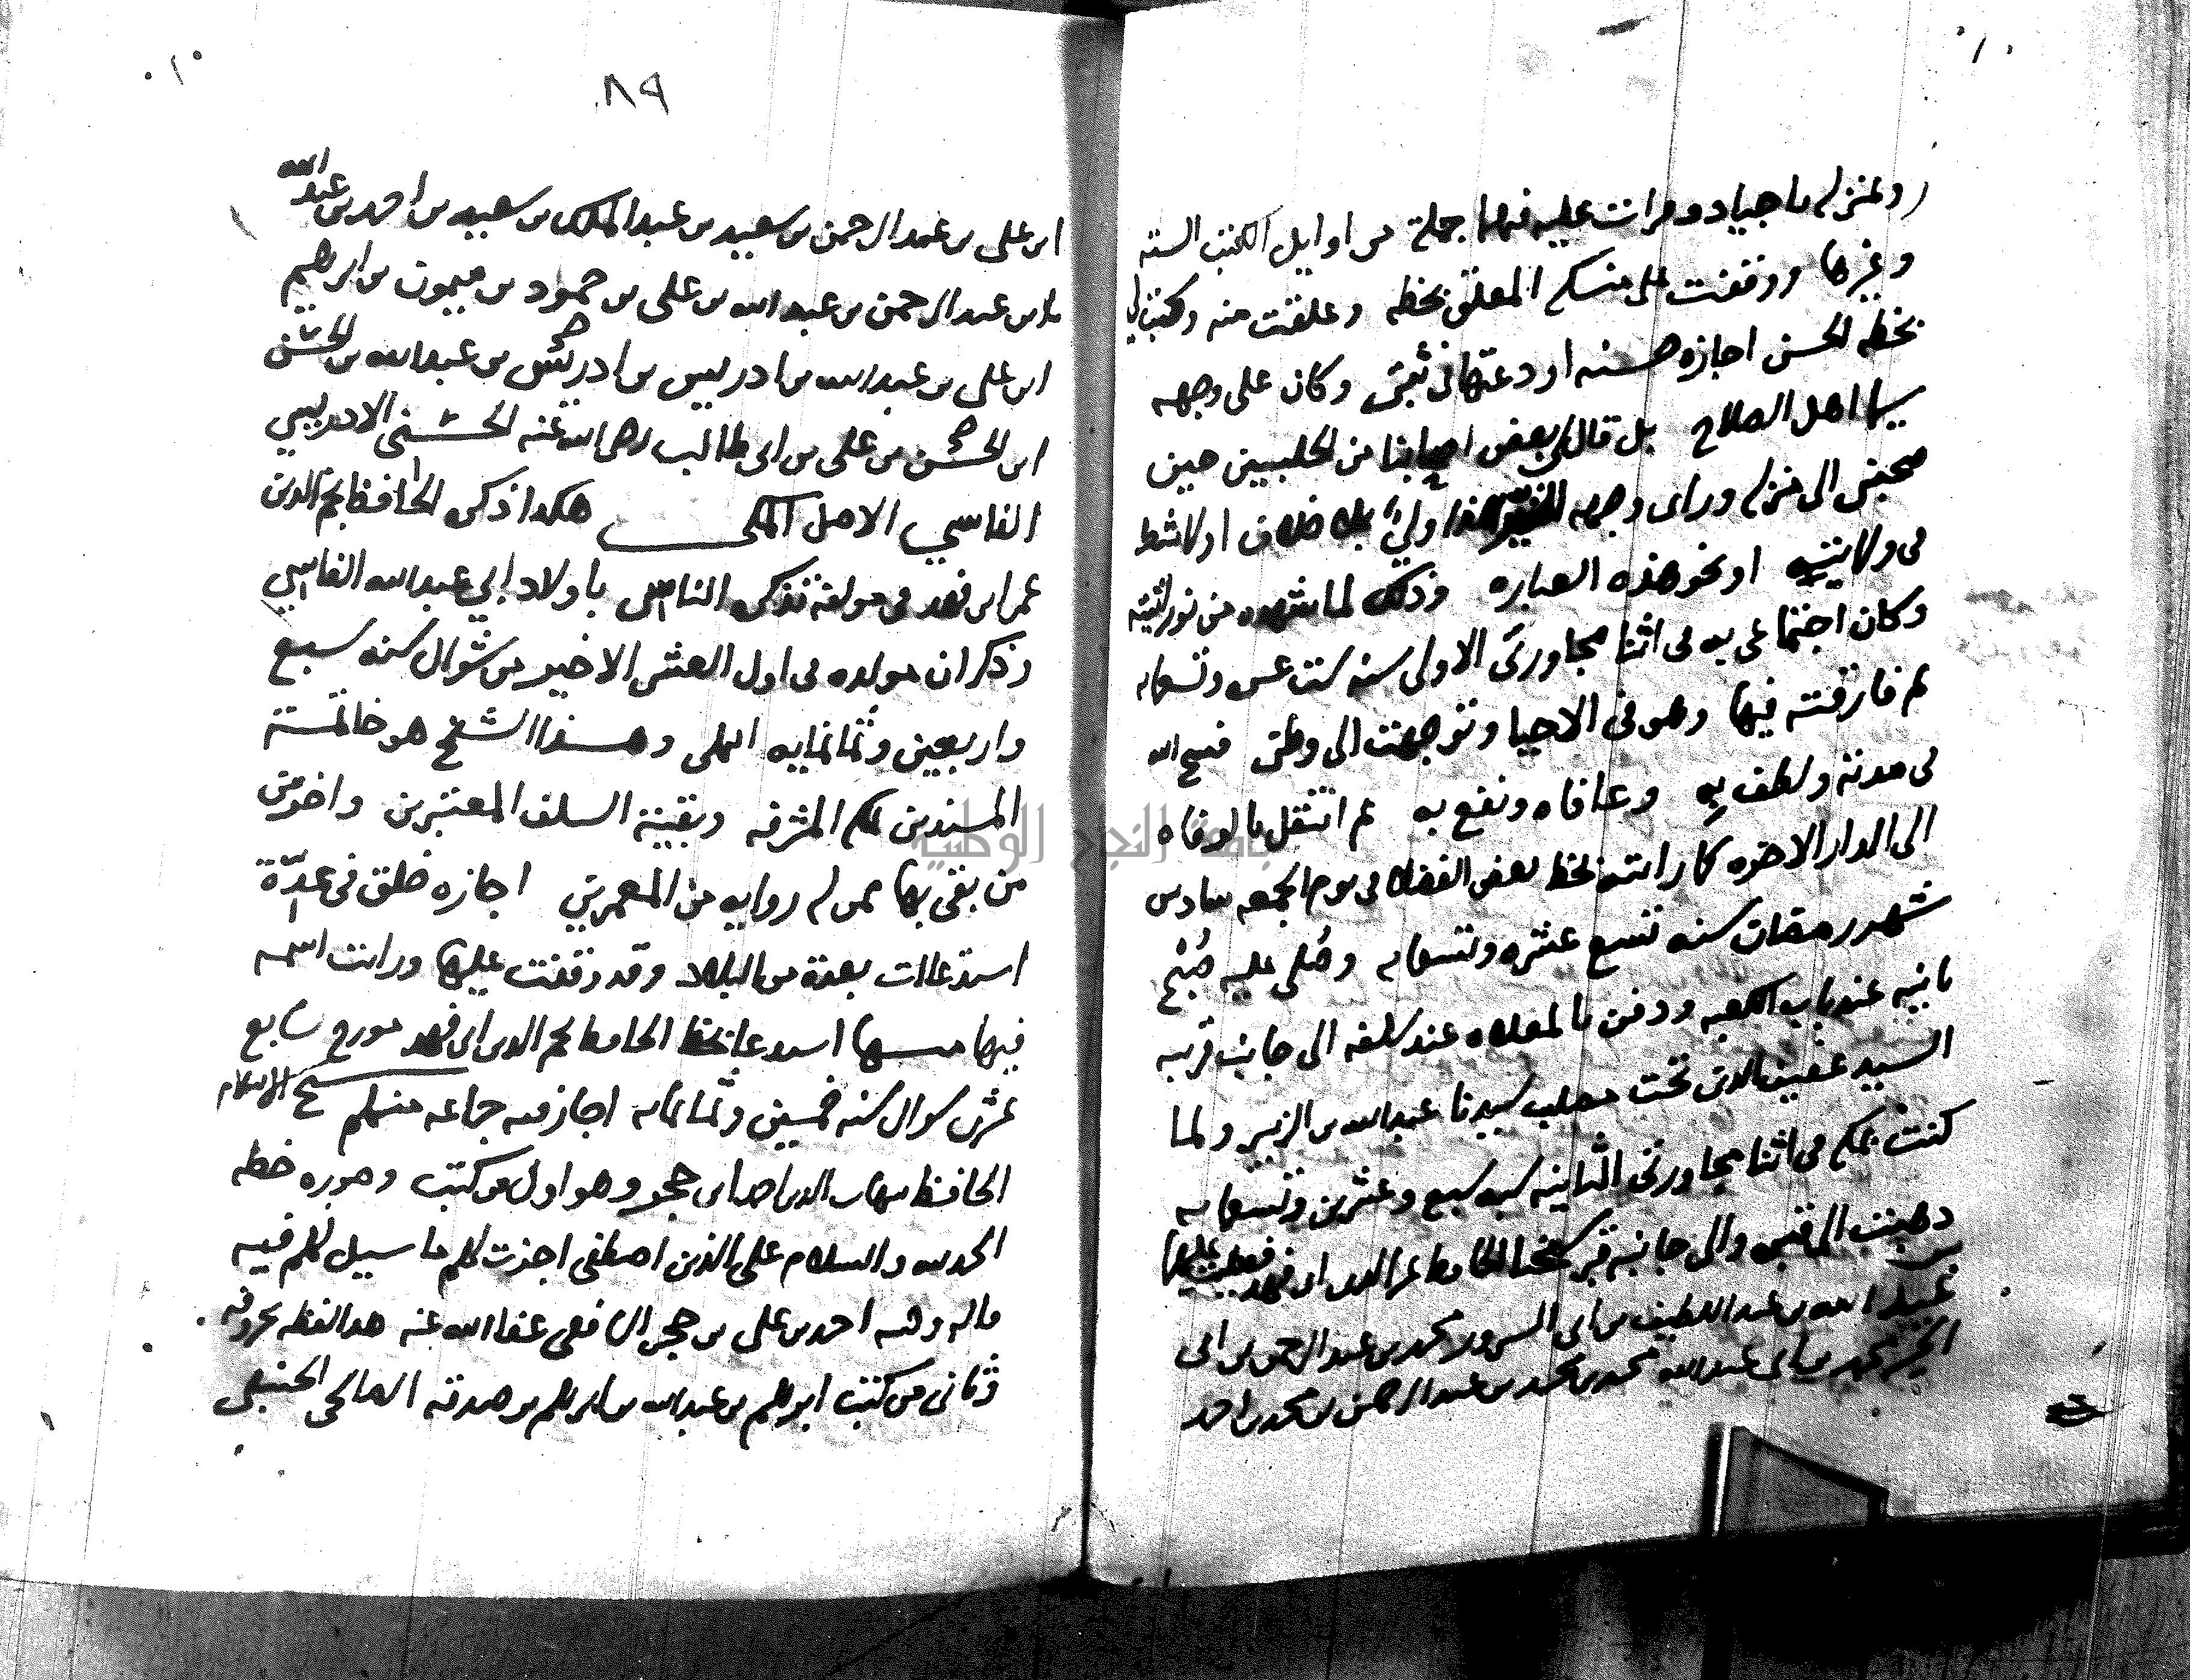 وبمنزله باجياد وقرات عليه فيهما جملة من اوايل الكتب الستة
وغيرها ووقفت على منسكه المعلق بخطه وعلقت منه وكتب لي
بخطه الحسن اجازه حسنه اودعتها في ثبتي وكان على وجهه
سيما اهل الصلاح بل قال لي بعض اصحابنا من الحلبيين حين
صحبني الى منزله وراى وجهه هذا ولي بلا خلاف اولا شط
في ولايته او نحو هذه العباره وذلك لما شهده من نورانيته
وكان اجتماعي به في اثنا مجاورتي الاولى سنه ست عشره وتسعمايه
ثم فارقته فيها وهو في الاحيا وتوجهت الى وطني فسح الله
في مدته ولطف به وعافاه ونفع به ثم انتقل بالوفاه
الى الدار الاخره كما رايته بخط بعض الفضلا في يوم الجمعه سادس
شهر رمضان سنه تسع عشره وتسعمايه وصلي عليه صبح
ثانيه عند باب الكعبه ودفن بالمعلاه عند سلفه الى جانب قريبه
السيد عفيف الدين تحت مصلب سيدنا عبدالله بن الزبير ولما
كنت بمكه في اثنا مجاورتي الثانيه سنه سبع وعشرين وتسعمايه
ذهبت الى قبره والى جانبه قبر شيخنا الحافظ عز الدين ابن فهد فوقفت عليهما
عبيد الله بن عبد اللطيف بن ابي السرور محمد بن عبد الرحمن بن ابي
الخير محمد بن ابي عبدالله محمد بن محمد بن عبد الرحمن بن محمد بن احمد
٨٩
ابن علي بن عبد الرحمن بن سعيد بن عبد الملك بن سعيد بن احمد بن عبدالله
بن عبد الرحمن بن عبد الله بن علي بن حمود بن ميمون بن ابرهيم
ابن علي بن عبد الله بن ادريس بن ادريس بن عبدالله بن الحسن
ابن الحسن بن علي بن ابي طالب رضي الله عنه الحسني الادريسي
الفاسي الاصل المكي هكذا ذكره الحافظ نجم الدين
عمر ابن فهد في مولفه تذكره الناسي باولاد ابي عبدالله الفاسي
وذكر ان مولده في اول العشر الاخير من شوال سنه سبع
واربعين وثمانمايه انتهى وهذا الشيخ هو خاتمة
المسندين بمكه المشرفه وبقية السلف المعتبرين واخر من
من بقي بها ممن له روايه من المعمرين اجازه خلق في عدّة
استدعاات بعدة من البلاد وقد وقفت عليها ورايت اسمه
فيها منها استدعا بخط الحافظ نجم الدين ابن فهد مورخ سابع
عشر شوال سنه خمسين وثمانمايه اجاز فيه جماعه منهم شيخ الاسلام
الحافظ شهاب الدين احمد ابن حجر وهو اول من كتب وصوره خطه
الحمد لله والسلام على الذين اصطفى اجزت لكم ما سيل لكم فيه
قاله وكتبه احمد بن علي بن حجر الشافعي عفا الله عنه هذا لفظه بحروفه
وثاني من كتب ابرهيم بن عبدالله بن ابرهيم بن صدقه الصالحي الحنبلي
جامعة النجاح الوطنية